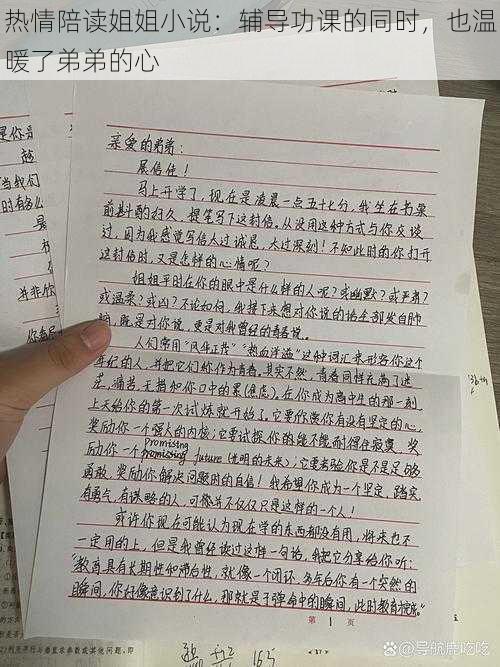 热情陪读姐姐小说：辅导功课的同时，也温
暖了弟弟的心
亲爱的弟弟：
展信佳！
马上开学了，现在是凌晨一点五十七分，我坐在书桌
前斟酌好久，提笔写下这封信。从没用这种方式与你交谈
过，因为我感觉写信太过诚恳，太过深刻！不知此时的你打开
这封信时，又是怎样的心情呢？
姐姐平时在你的眼中是什么样的人呢？或幽默？或严肃？
或温柔？或凶？不论如何，我接下来想对你说的话全部发自肺
腑，既是对你说，更是对我曾经的青春说。
人们常用“风华正茂”“热血洋溢”这种词汇来形容你这个
年纪的人，并把它们称作为青春。其实不然，青春同样充满了迷
茫，痛苦，无措和你口中的累（焦虑）。在你成为高中生的那一刻
上天给你的第一次试炼就开始了。它要你携有没有坚定的心，
奖励你一个强大的内核；它要试探你的能不能耐得住寂寞，奖
励你一个promising future（光明的未来）；它要考验你是不是足够
勇敢，奖励你解决问题时的自信！我希望你成为一个坚定，踏实
有勇气，有谋略的人，可像并不仅仅只是这样的一个人！
或许你现在可能认为现在学的东西都没有用，将来也不
一定用的上，但是我曾经读过这样一句话，我把它分享给你听：
“教育具有长期性和滞后性，就像一个闭环，多年后你有一个突然的
瞬间，你好像意识到了什么，那就是子弹命中的瞬间，此时教育完成。”
第 1 页
是你眼
当我们
时有多么
并非饮
16号
@导航鹿吃吃